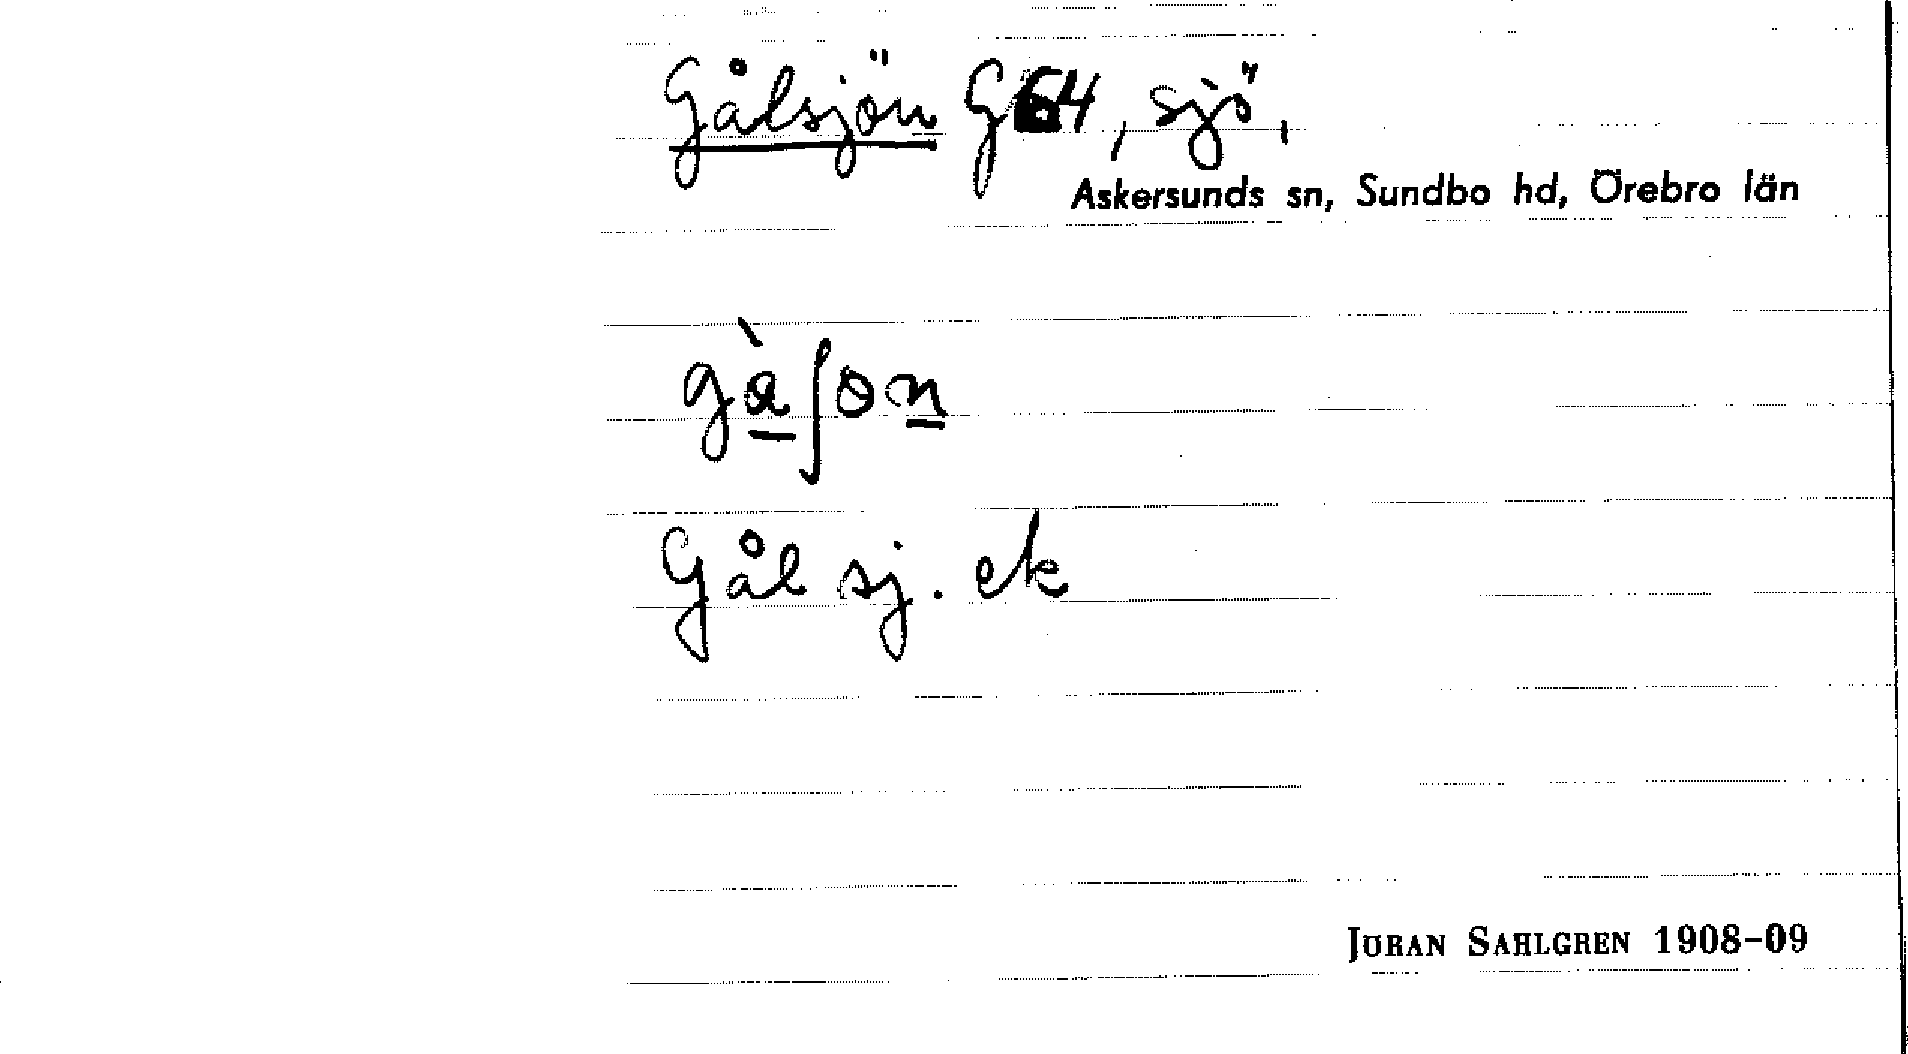 Gålsjön G64, sjö,
Askersunds sn, Sundbo hd, Örebro län
gàʃɵn
Gål sj. ek
JÖRAN SAHLGREN 1908-09